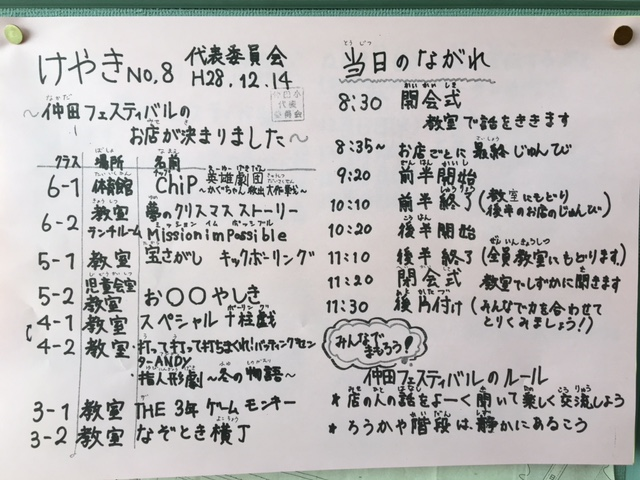 けやき No.8 代表委員会
H28.12.14
〜仲田フェスティバルの
お店が決まりました〜
クラス 場所 名前
6-1 体育館 ChiP 英雄劇団
〜かぐちゃん救出大作戦〜
6-2 教室 夢のクリスマスストーリー
ランチルーム Mission impossible
5-1 教室 宝さがし キックボーリング
5-2 児童会室 お〇〇やしき
教室
4-1 教室 スペシャル十柱戯
4-2 教室・打って打って打ちまくれ!バッティングセン
ター ANDY
指人形劇〜冬の物語〜
3-1 教室 THE 3年ゲームモンキー
3-2 教室 なぞとき横丁
当日のながれ
8:30 開会式
教室で話をききます
8:35〜 お店ごとに最終じゅんび
9:20 前半開始
10:10 前半終了(教室にもどり
後半のお店のじゅんび)
10:20 後半開始
11:10 後半終了(全員教室にもどります。)
11:20 閉会式 教室でしずかに聞きます
11:30 後片付け(みんなで力を合わせて
とりくみましょう!)
みんなで
まもろう!
仲田フェスティバルのルール
★店の人の話をよーく聞いて楽しく交流しよう
★ろうかや階段は静かにあるこう